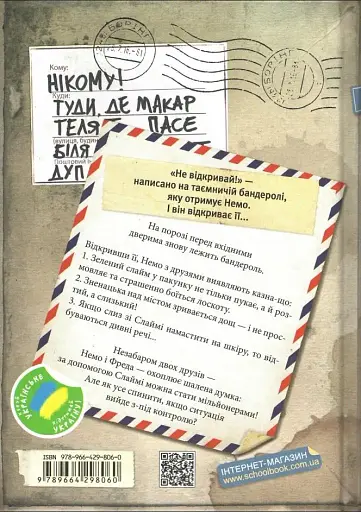 Кому:
НІКОМУ!
Куди:
ТУДИ, ДЕ МАКАР
ТЕЛЯ ПАСЕ
БІЛЯ
ДУП
«Не відкривай!» —
написано на таємничій бандеролі,
яку отримує Немо.
І він відкриває її...
На порозі перед вхідними
дверима знову лежить бандероль.
Відкривши її, Немо з друзями виявляють казна-що:
1. Зелений слайм у пакеті не тільки пукає, а й роз-
мовляє та страшенно боїться лоскоту.
2. Зненацька над містом зривається дощ — і не прос-
тий, а слизький!
3. Якщо слиз зі Слаймі намастити на шкіру, то від-
буваються дивні речі...
Незабаром двох друзів —
Немо і Фреда — охоплює шалена думка:
за допомогою Слаймі можна стати мільйонерами!
Але як усе спинити, якщо ситуація
вийде з-під контролю?
УКРАЇНСЬКЕ
УКРАЇНУ!
ISBN 978-966-429-806-0
9 789664 298060
ІНТЕРНЕТ-МАГАЗИН
www.schoolbook.com.ua